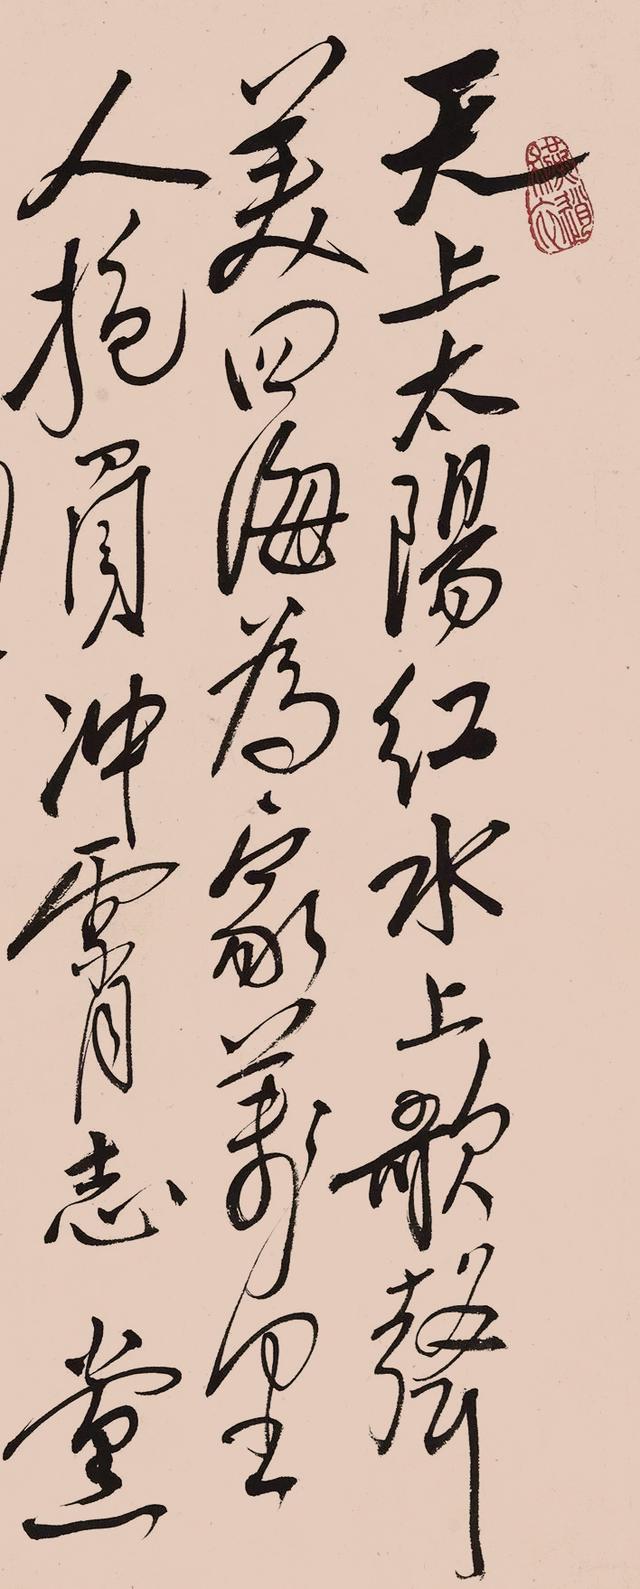 天上太陽红水上歌聲
美四海為家萬里
人抱負冲霄志黨